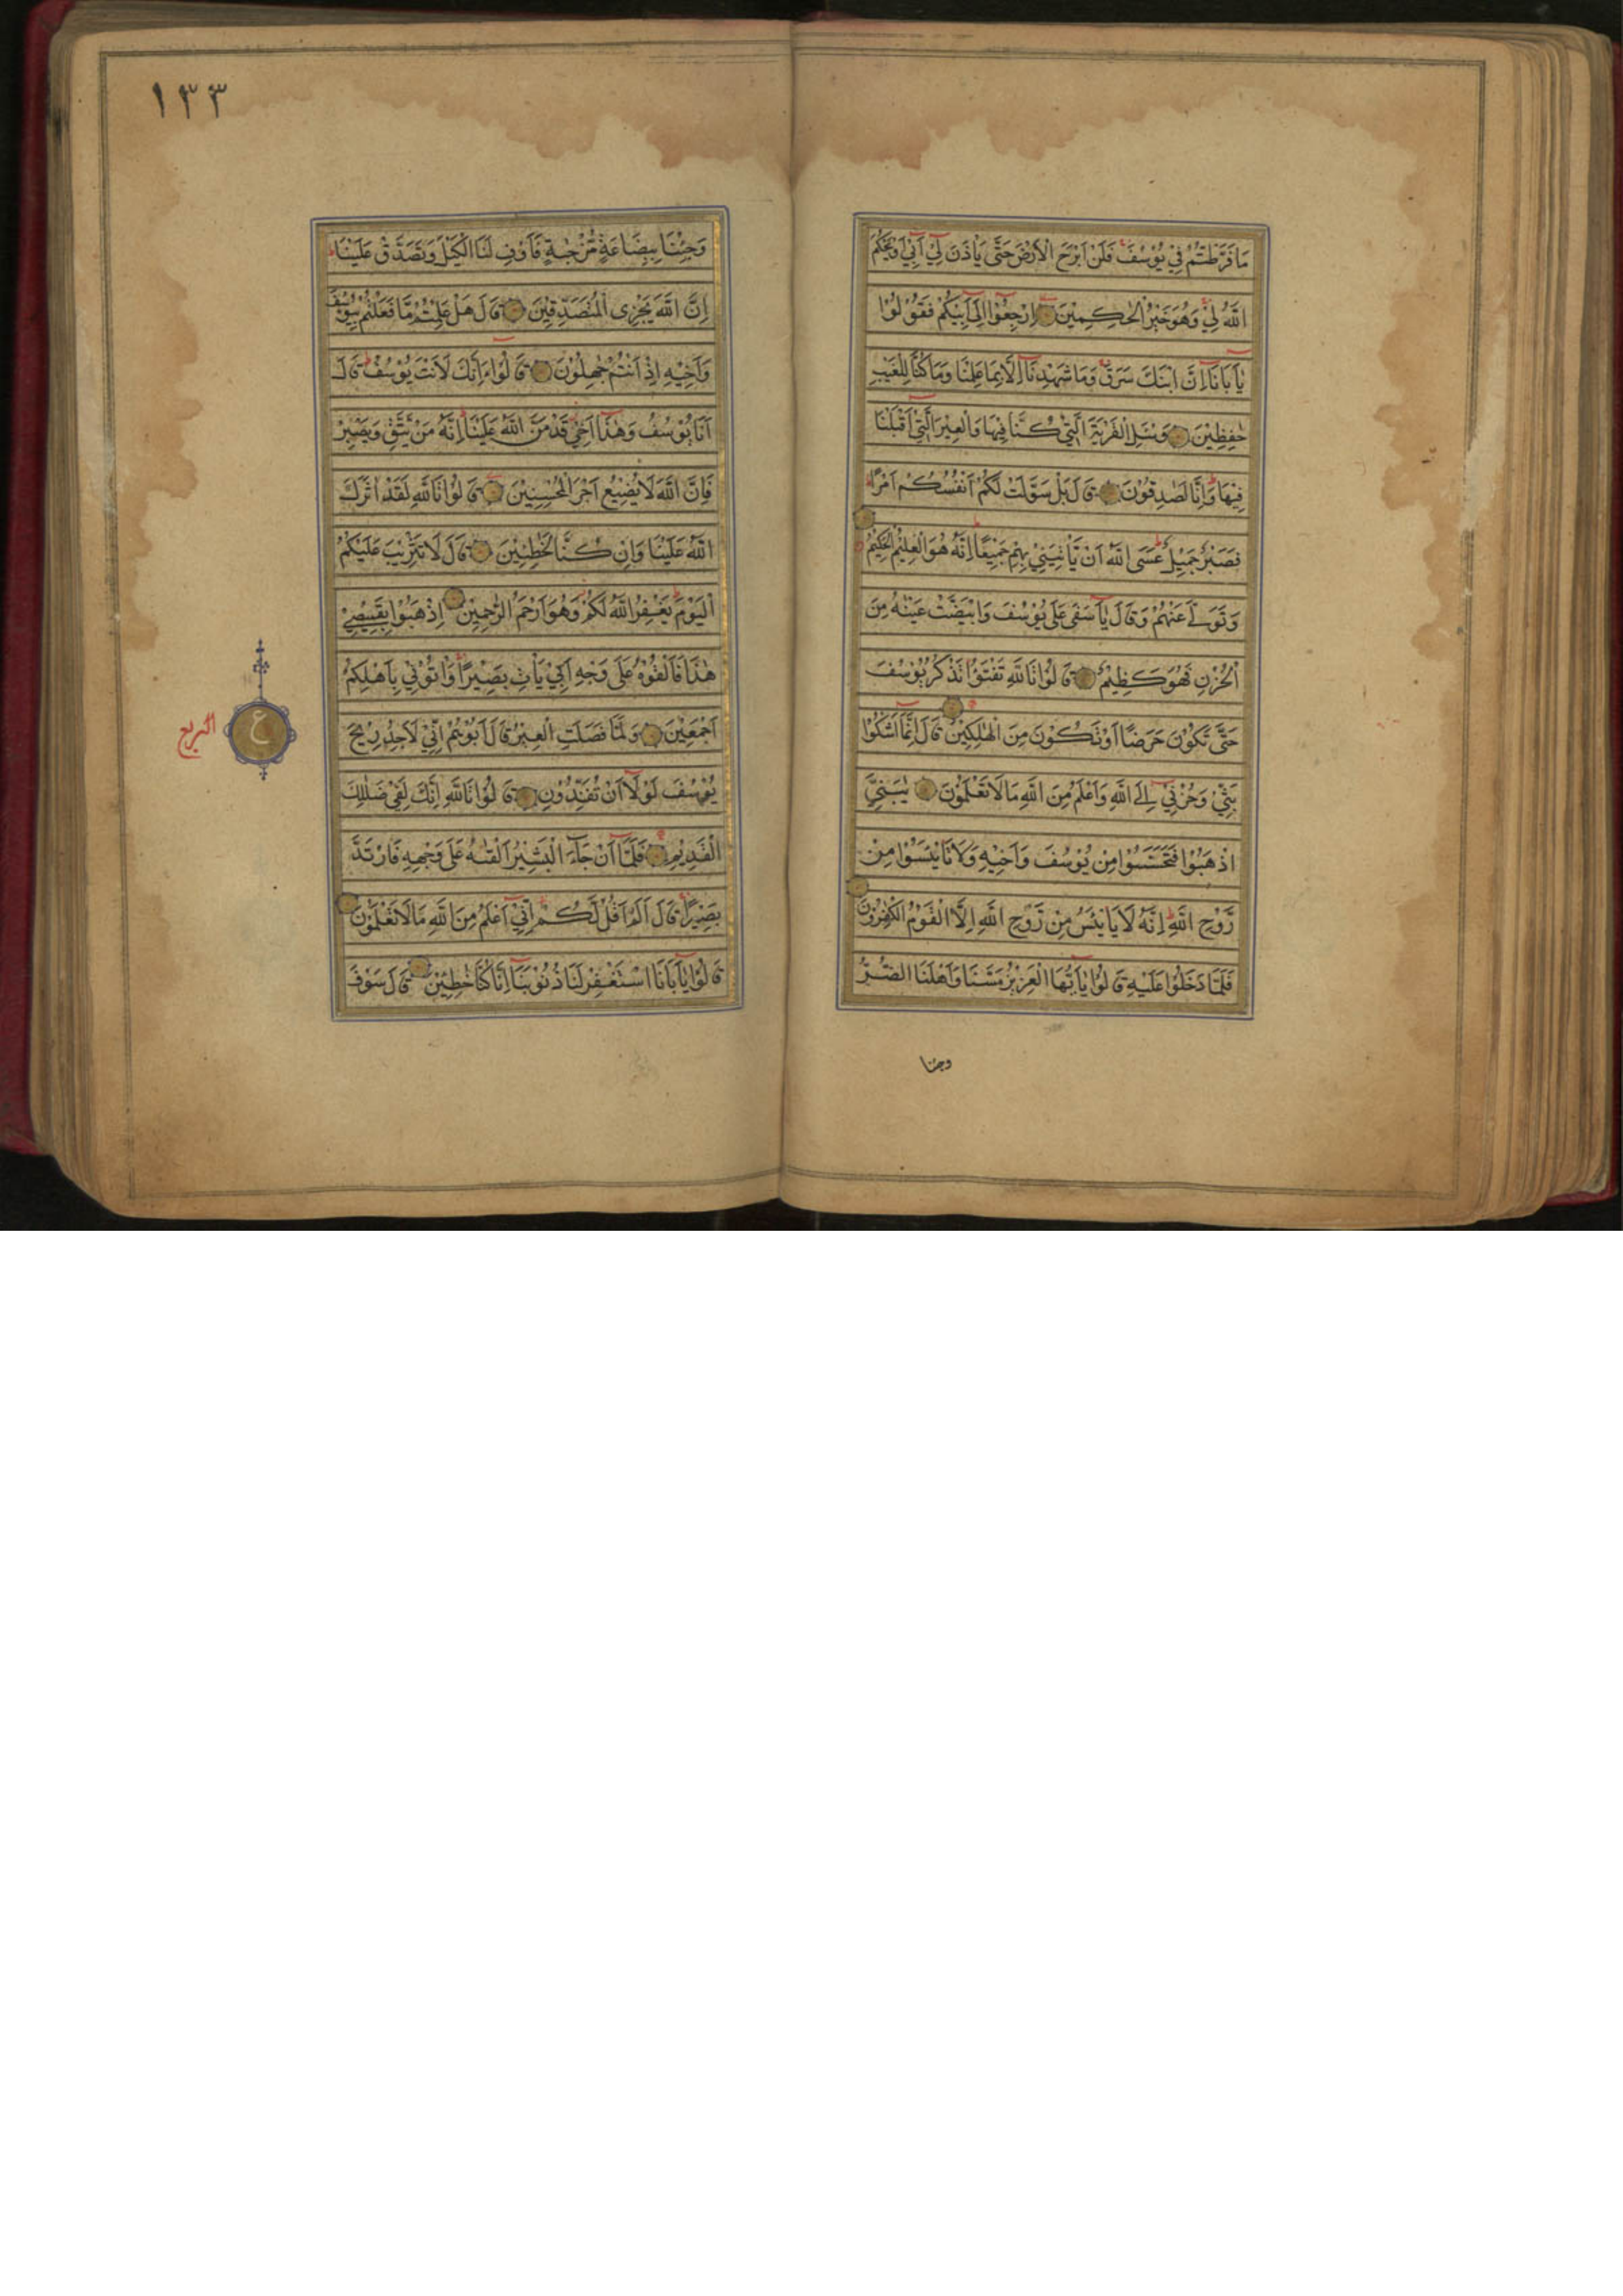 مَا فَرَّطْتُمْ فِيْ يُوْسُفَ فَلَنْ اَبْرَحَ الْاَرْضَ حَتّٰى يَاْذَنَ لِيْ اَبِيْ اَوْ يَحْكُمَ
اللّٰهُ لِيْ وَهُوَ خَيْرُ الْحٰكِمِيْنَ اِرْجِعُوْا اِلٰى اَبِيْكُمْ فَقُوْلُوْا
يٰاَبَانَا اِنَّ ابْنَكَ سَرَقَ وَمَا شَهِدْنَا اِلَّا بِمَا عَلِمْنَا وَمَا كُنَّا لِلْغَيْبِ
حٰفِظِيْنَ وَسْئَلِ الْقَرْيَةَ الَّتِيْ كُنَّا فِيْهَا وَالْعِيْرَ الَّتِيْ اَقْبَلْنَا
فِيْهَا وَاِنَّا لَصٰدِقُوْنَ قَالَ بَلْ سَوَّلَتْ لَكُمْ اَنْفُسُكُمْ اَمْرًا
فَصَبْرٌ جَمِيْلٌ عَسَى اللّٰهُ اَنْ يَّاْتِيَنِيْ بِهِمْ جَمِيْعًا اِنَّهُ هُوَ الْعَلِيْمُ الْحَكِيْمُ
وَتَوَلّٰى عَنْهُمْ وَقَالَ يٰاَسَفٰى عَلٰى يُوْسُفَ وَابْيَضَّتْ عَيْنٰهُ مِنَ
الْحُزْنِ فَهُوَ كَظِيْمٌ قَالُوْا تَاللّٰهِ تَفْتَؤُا تَذْكُرُ يُوْسُفَ
حَتّٰى تَكُوْنَ حَرَضًا اَوْ تَكُوْنَ مِنَ الْهٰلِكِيْنَ قَالَ اِنَّمَا اَشْكُوْا
بَثِّيْ وَحُزْنِيْ اِلَى اللّٰهِ وَاَعْلَمُ مِنَ اللّٰهِ مَا لَا تَعْلَمُوْنَ يٰبَنِيَّ
اذْهَبُوْا فَتَحَسَّسُوْا مِنْ يُوْسُفَ وَاَخِيْهِ وَلَا تَايْئَسُوْا مِنْ
رَّوْحِ اللّٰهِ اِنَّهُ لَا يَايْئَسُ مِنْ رَّوْحِ اللّٰهِ اِلَّا الْقَوْمُ الْكٰفِرُوْنَ
فَلَمَّا دَخَلُوْا عَلَيْهِ قَالُوْا يٰاَيُّهَا الْعَزِيْزُ مَسَّنَا وَاَهْلَنَا الضُّرُّ
وجئنا
١٣٣
وَجِئْنَا بِبِضَاعَةٍ مُّزْجٰىةٍ فَاَوْفِ لَنَا الْكَيْلَ وَتَصَدَّقْ عَلَيْنَا
اِنَّ اللّٰهَ يَجْزِى الْمُتَصَدِّقِيْنَ قَالَ هَلْ عَلِمْتُمْ مَّا فَعَلْتُمْ بِيُوْسُفَ
وَاَخِيْهِ اِذْ اَنْتُمْ جٰهِلُوْنَ قَالُوْا ءَاِنَّكَ لَاَنْتَ يُوْسُفُ قَالَ
اَنَا يُوْسُفُ وَهٰذَا اَخِيْ قَدْ مَنَّ اللّٰهُ عَلَيْنَا اِنَّهُ مَنْ يَّتَّقِ وَيَصْبِرْ
فَاِنَّ اللّٰهَ لَا يُضِيْعُ اَجْرَ الْمُحْسِنِيْنَ قَالُوْا تَاللّٰهِ لَقَدْ اٰثَرَكَ
اللّٰهُ عَلَيْنَا وَاِنْ كُنَّا لَخٰطِئِيْنَ قَالَ لَا تَثْرِيْبَ عَلَيْكُمُ
الْيَوْمَ يَغْفِرُ اللّٰهُ لَكُمْ وَهُوَ اَرْحَمُ الرّٰحِمِيْنَ اِذْهَبُوْا بِقَمِيْصِيْ
هٰذَا فَاَلْقُوْهُ عَلٰى وَجْهِ اَبِيْ يَاْتِ بَصِيْرًا وَاْتُوْنِيْ بِاَهْلِكُمْ
اَجْمَعِيْنَ وَلَمَّا فَصَلَتِ الْعِيْرُ قَالَ اَبُوْهُمْ اِنِّيْ لَاَجِدُ رِيْحَ
يُوْسُفَ لَوْلَا اَنْ تُفَنِّدُوْنِ قَالُوْا تَاللّٰهِ اِنَّكَ لَفِيْ ضَلٰلِكَ
الْقَدِيْمِ فَلَمَّا اَنْ جَاءَ الْبَشِيْرُ اَلْقٰىهُ عَلٰى وَجْهِهِ فَارْتَدَّ
بَصِيْرًا قَالَ اَلَمْ اَقُلْ لَّكُمْ اِنِّيْ اَعْلَمُ مِنَ اللّٰهِ مَا لَا تَعْلَمُوْنَ
قَالُوْا يٰاَبَانَا اسْتَغْفِرْ لَنَا ذُنُوْبَنَا اِنَّا كُنَّا خٰطِئِيْنَ قَالَ سَوْفَ
ع
الربع